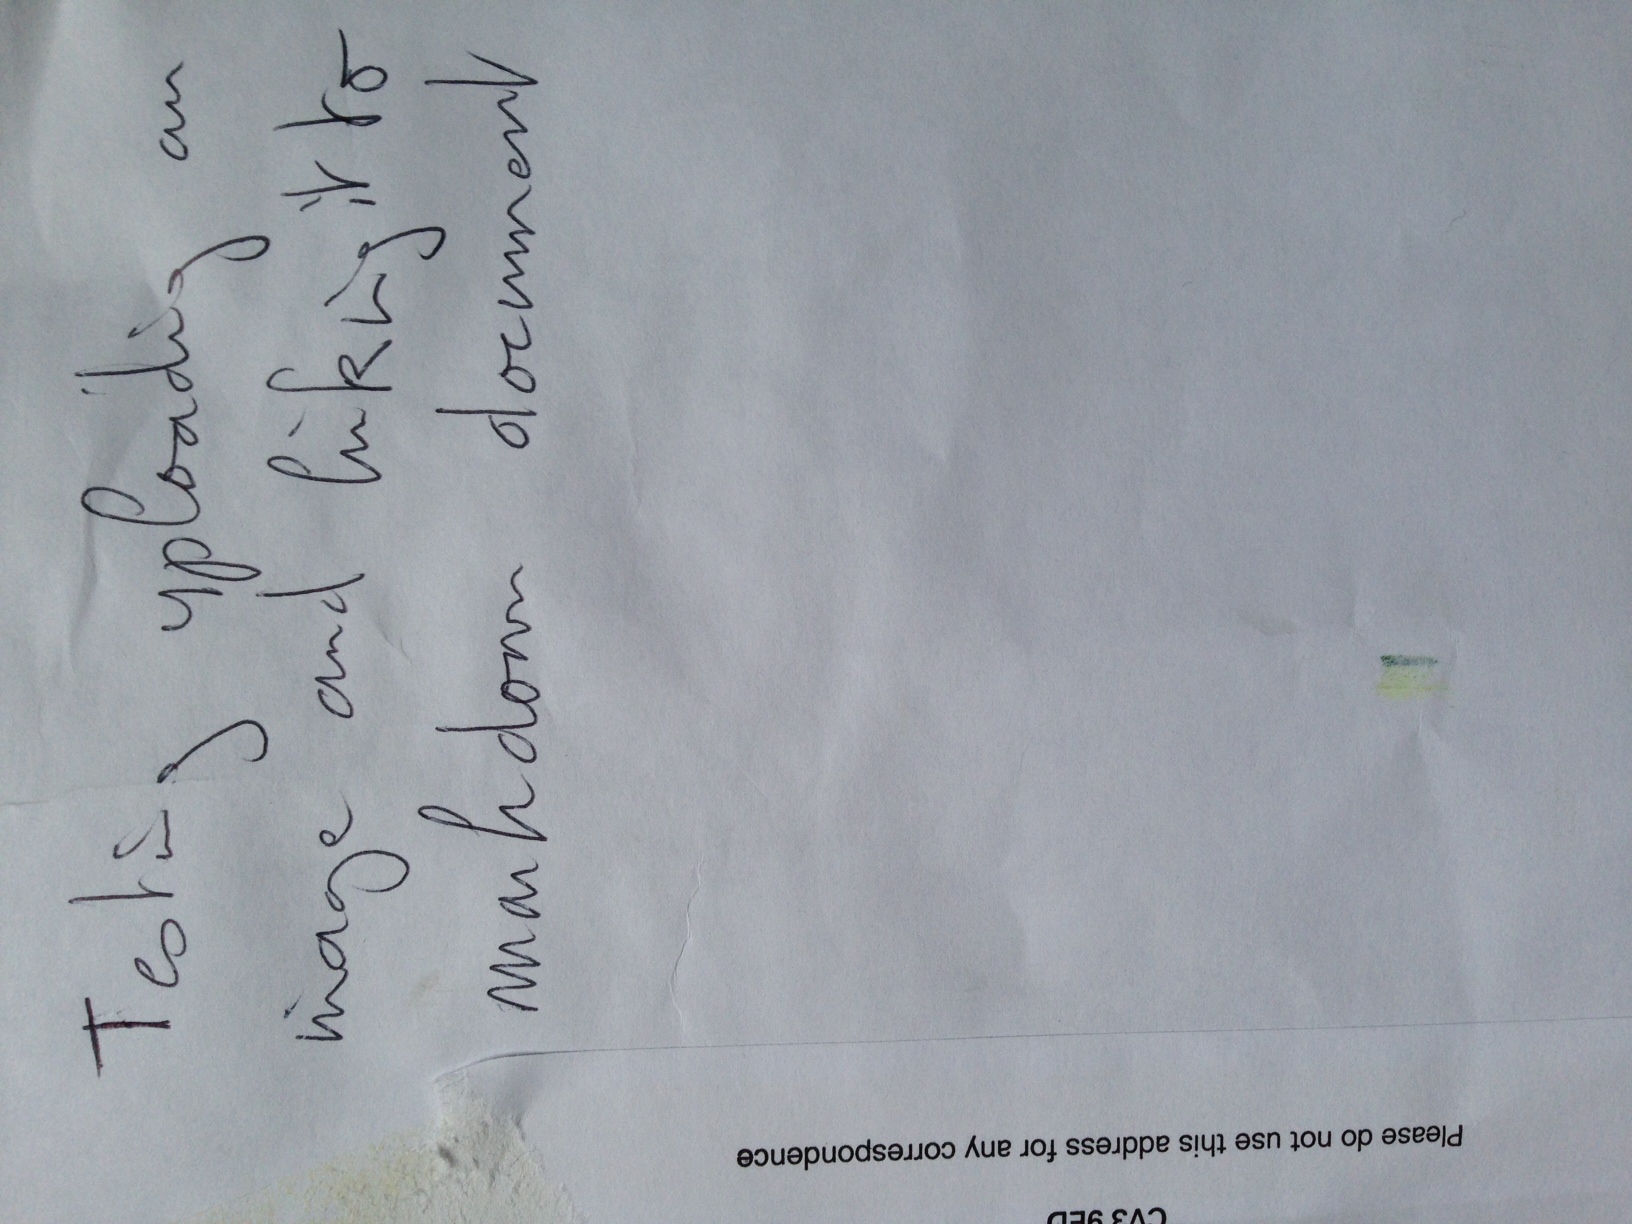 Testing uploading an
image and linking it to
markdown document
Please do not use this address for any correspondence
CV3 9ED